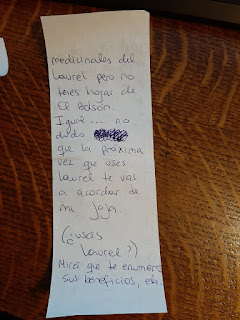 medicinales del
laurel pero no
tenes hojas de
El Bolsón.
Igual... no
dudo
que la próxima
vez que uses
laurel te vas
a acordar de
mi jaja.
(¿usás
laurel?)
Mirá que te enumeré
sus beneficios, eh.